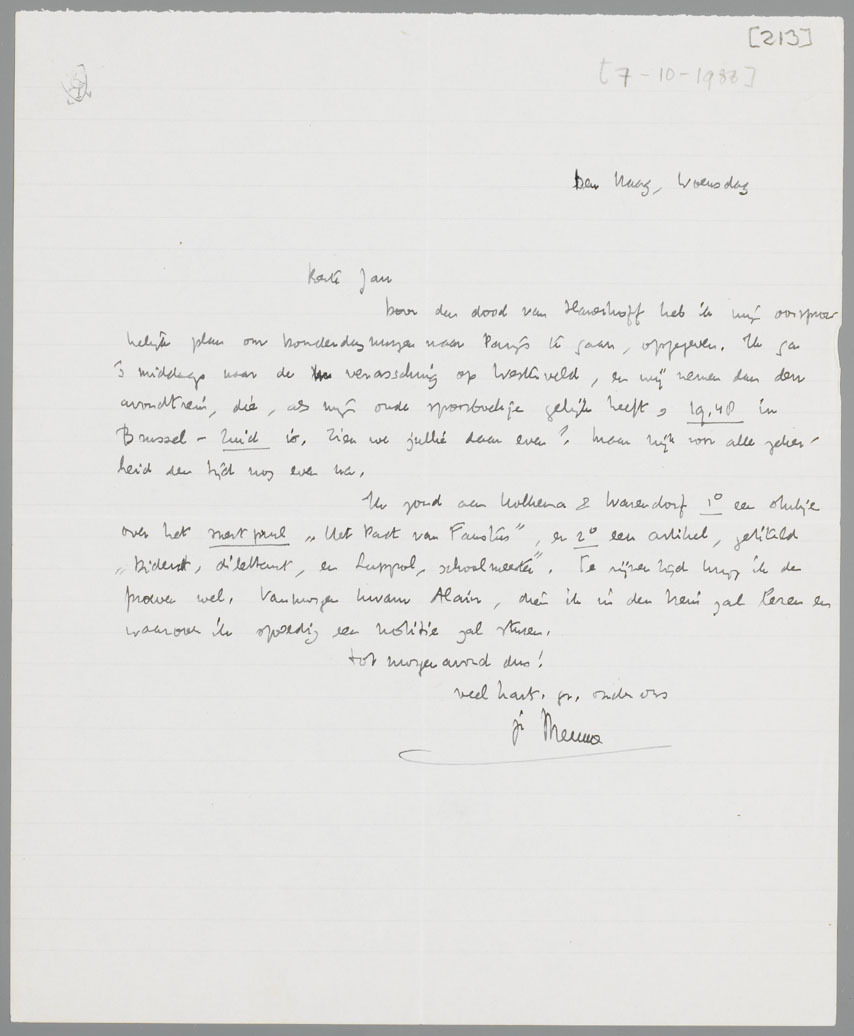 [213]
[7-10-1938]
Den Haag, Woensdag
Beste Jan
Door den dood van heb ik mijn oorspron
kelijke plan om donderdagmorgen naar Parijs te gaan, opgegeven. Ik ga
's middags naar de verassching op Westerveld, en wij nemen dan den
avondtrein, die, als mijn oude spoorboekje gelijk heeft, 19.48 in
Brussel - Zuid is. Zien we jullie daar even? Maar kijk voor alle zeker-
heid den tijd nog even na.
Ik zond aan Holkema & Warendorf 1° een stukje
over het "Het Pact van Faustus", en 2° een artikel, getiteld
"Diderot, dilettant, en Luppol, schoolmeester". Te zijner tijd krijg ik de
proeven wel. Vanmorgen kwam Alain, dien ik in den trein zal lezen en
waarover ik spoedig een notitie zal sturen.
Tot morgenavond dus!
veel hart. gr. onder ons
je Menno